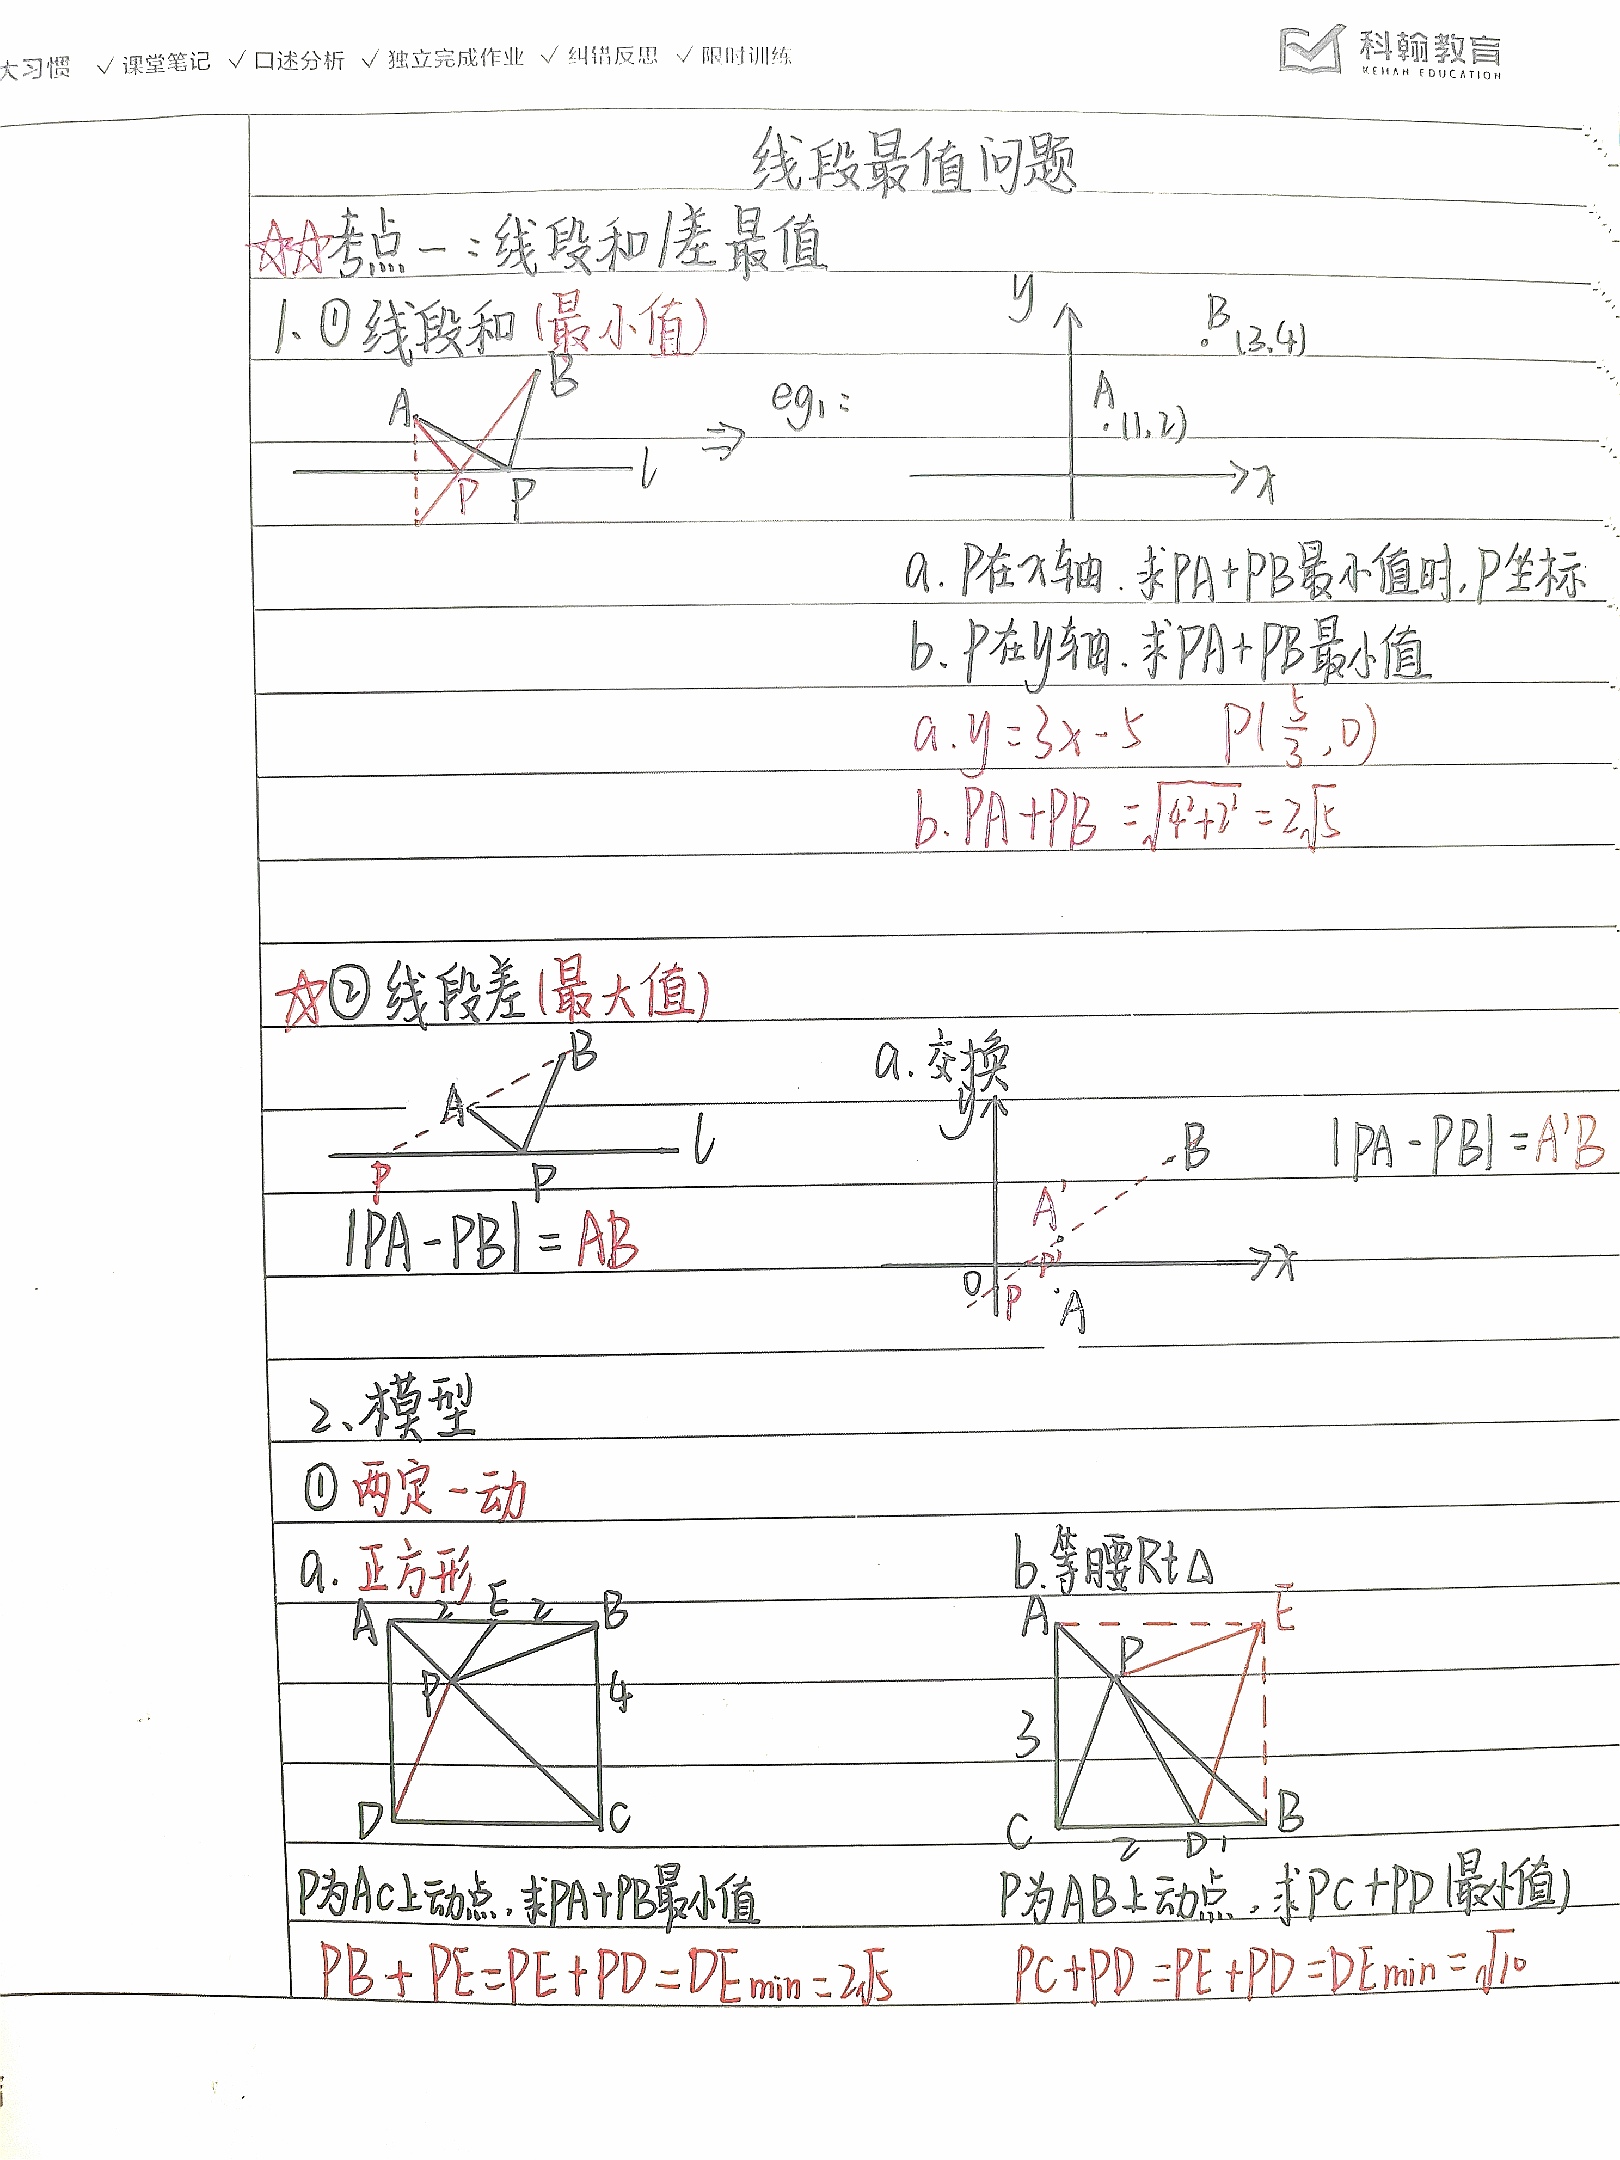 大习惯 ✓课堂笔记 ✓口述分析 ✓独立完成作业 ✓纠错反思 ✓限时训练
科翰教育
KEHAN EDUCATION
线段最值问题
☆☆考点一:线段和/差最值
1.①线段和(最小值)
A B P P l
⇒ eg1:
y B (3,4)
A (1,2)
x
a. P在x轴.求PA+PB最小值时,P坐标
b. P在y轴.求PA+PB最小值
a. y=3x-5 P(5/3,0)
b. PA+PB=√(4²+2²)=2√5
☆②线段差(最大值)
B A l P P
|PA-PB|=AB
a.交换
y B A' P' O P A x
|PA-PB|=A'B
2、模型
①两定一动
a.正方形
A 2 E 2 B
P 4
D C
P为AC上动点,求PA+PB最小值
PB+PE=PE+PD=DEmin=2√5
b.等腰Rt△
A E
P
3
C 2 D 1 B
P为AB上动点,求PC+PD(最小值)
PC+PD=PE+PD=DEmin=√10